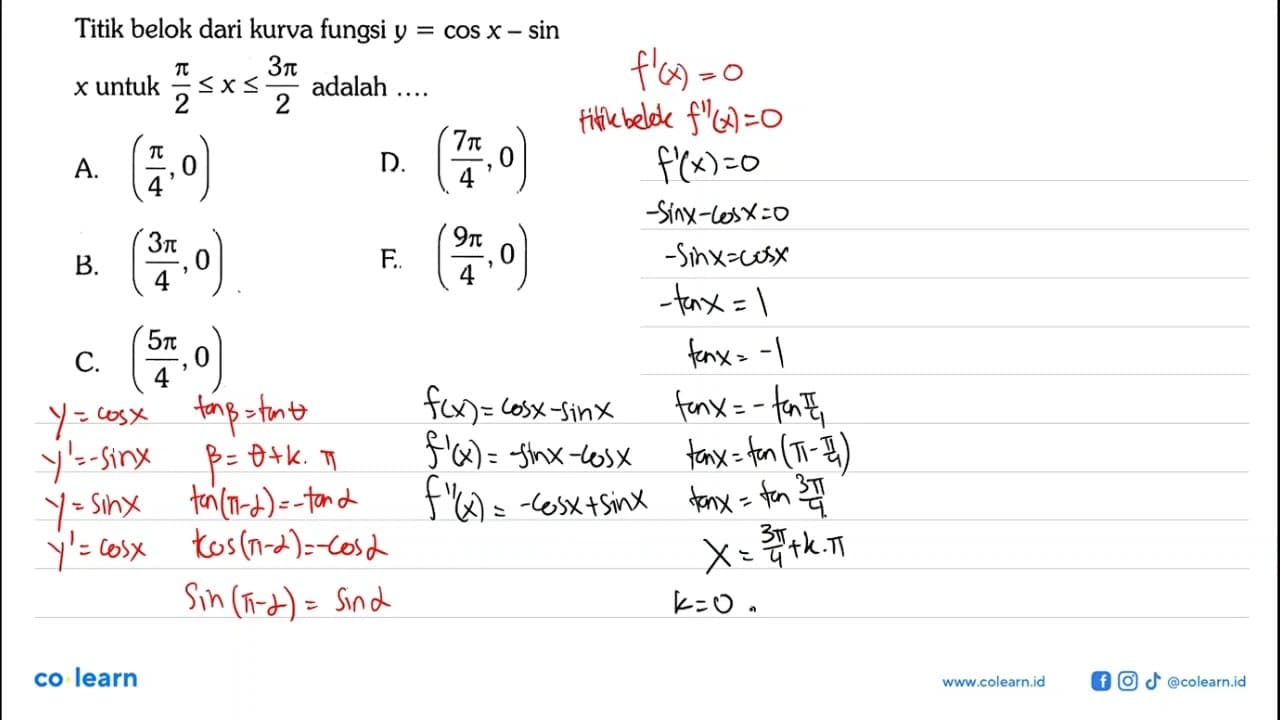 Titik belok dari kurva fungsi y = cos x – sin
x untuk π/2 ≤ x ≤ 3π/2 adalah ....
A. (π/4, 0)
B. (3π/4, 0)
C. (5π/4, 0)
D. (7π/4, 0)
E. (9π/4, 0)
f'(x) = 0
titik belok f''(x) = 0
f'(x) = 0
-sinx - cosx = 0
-sinx = cosx
-tanx = 1
tanx = -1
tanx = -tan π/4
tanx = tan(π - π/4)
tanx = tan 3π/4
x = 3π/4 + k.π
k = 0
y = cosx
y' = -sinx
y = sinx
y' = cosx
tanβ = tanθ
β = θ + k. π
tan(π-α) = -tanα
cos(π-α) = -cosα
Sin(π-α) = Sinα
f(x) = cosx - sinx
f'(x) = -sinx - cosx
f''(x) = -cosx + sinx
co learn
www.colearn.id
@colearn.id